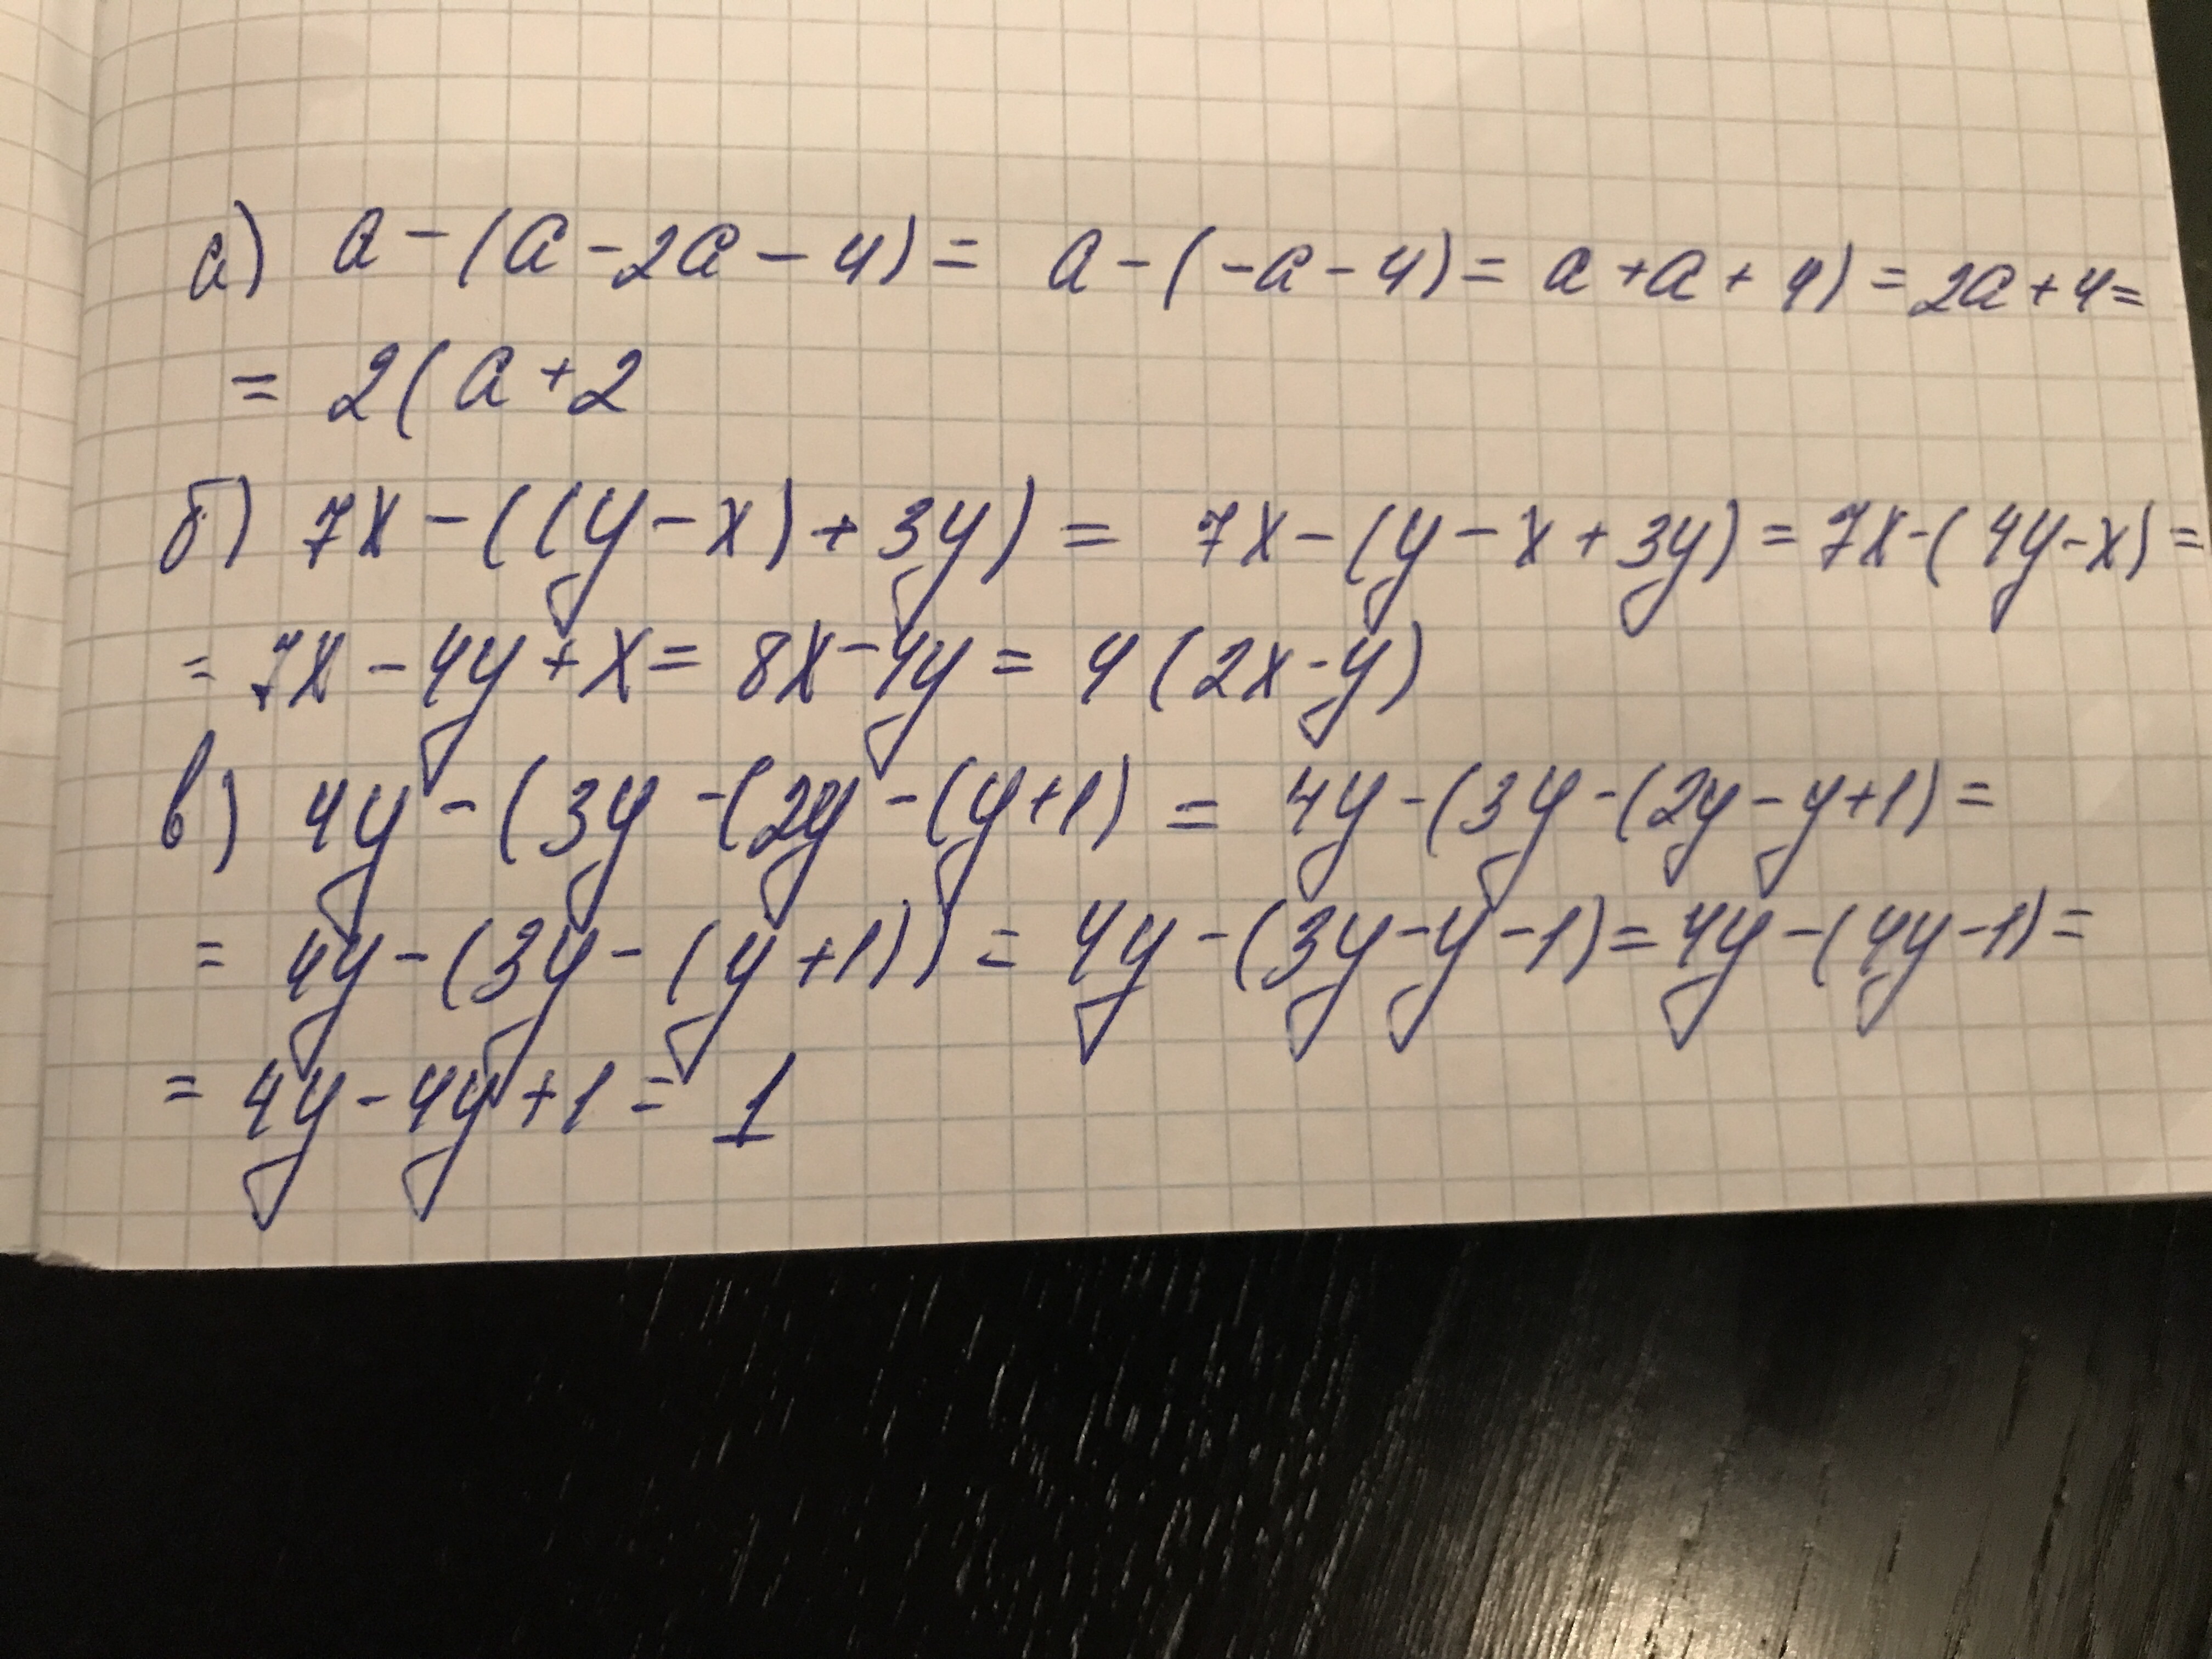 а) a - (a - 2a - 4) = a - (-a - 4) = a + a + 4) = 2a + 4 =
= 2(a + 2
б) 7x - ((y - x) + 3y) = 7x - (y - x + 3y) = 7x - (4y - x) =
= 7x - 4y + x = 8x - 4y = 4(2x - y)
в) 4y - (3y - (2y - (y + 1) = 4y - (3y - (2y - y + 1) =
= 4y - (3y - (y + 1)) = 4y - (3y - y - 1) = 4y - (4y - 1) =
= 4y - 4y + 1 = 1